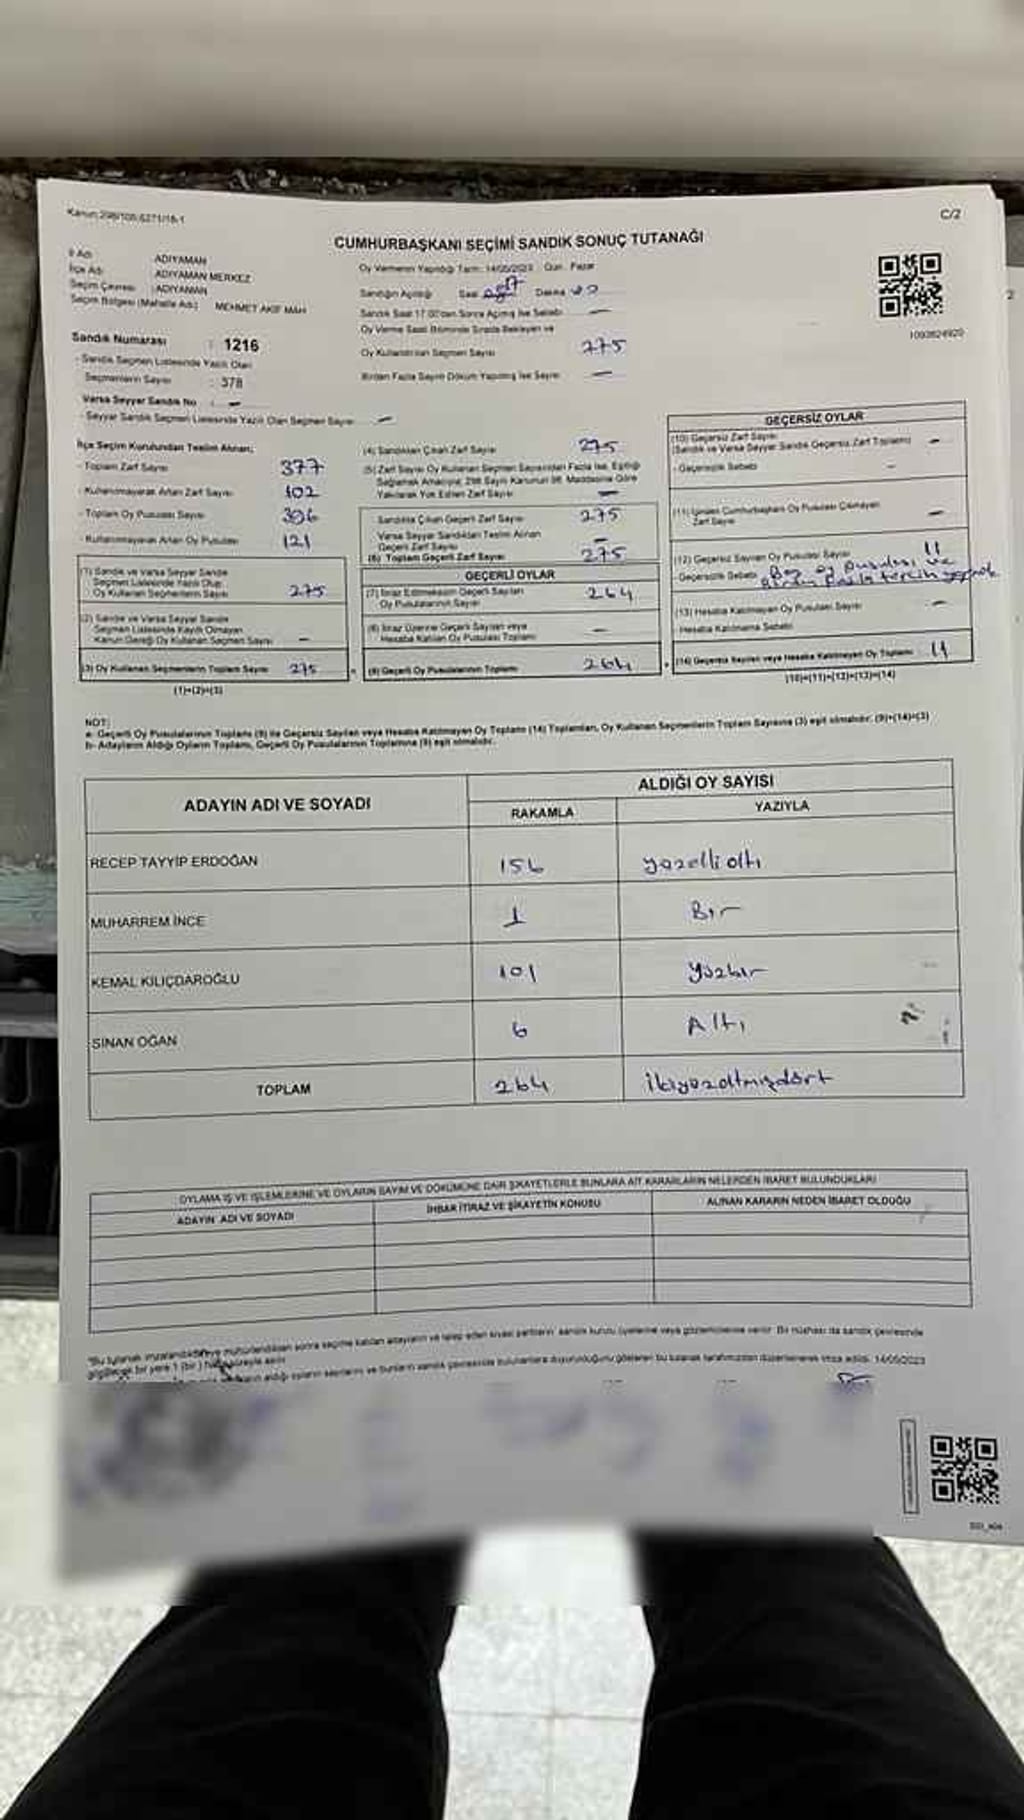 Kanun:298/105;6271/18-1
C/2
CUMHURBAŞKANI SEÇİMİ SANDIK SONUÇ TUTANAĞI
İl Adı ADIYAMAN
İlçe Adı ADIYAMAN MERKEZ
Seçim Çevresi :ADIYAMAN
Seçim Bölgesi (Mahalle Adı) MEHMET AKİF MAH
Oy Vermenin Yapıldığı Tarih: 14/05/2023 Gün: Pazar
Sandığın Açıldığı Saat Dakika
Sandık Saat 17.00'dan Sonra Açılmış İse Sebebi —
Oy Verme Saati Bitiminde Sırada Bekleyen ve
Oy Kullandırılan Seçmen Sayısı 275
Birden Fazla Sayım Döküm Yapılmış İse Sayısı —
1093624920
Sandık Numarası : 1216
- Sandık Seçmen Listesinde Yazılı Olan
Seçmenlerin Sayısı : 378
Varsa Seyyar Sandık No : —
- Seyyar Sandık Seçmen Listesinde Yazılı Olan Seçmen Sayısı —
İlçe Seçim Kurulundan Teslim Alınan;
- Toplam Zarf Sayısı 377
- Kullanılmayarak Artan Zarf Sayısı 102
- Toplam Oy Pusulası Sayısı 396
- Kullanılmayarak Artan Oy Pusulası 121
(1) Sandık ve Varsa Seyyar Sandık
Seçmen Listesinde Yazılı Olup
Oy Kullanan Seçmenlerin Sayısı 275
(2) Sandık ve Varsa Seyyar Sandık
Seçmen Listesinde Kaydı Olmayan
Kanun Gereği Oy Kullanan Seçmen Sayısı —
(3) Oy Kullanan Seçmenlerin Toplam Sayısı 275
(1)+(2)=(3)
(4) Sandıktan Çıkan Zarf Sayısı 275
(5) Zarf Sayısı Oy Kullanan Seçmen Sayısından Fazla İse, Eşitliği
Sağlamak Amacıyla; 298 Sayılı Kanunun 98. Maddesine Göre
Yakılarak Yok Edilen Zarf Sayısı —
Sandıkta Çıkan Geçerli Zarf Sayısı 275
Varsa Seyyar Sandıktan Teslim Alınan
Geçerli Zarf Sayısı —
(6) Toplam Geçerli Zarf Sayısı 275
GEÇERLİ OYLAR
(7) İtiraz Edilmeksizin Geçerli Sayılan
Oy Pusulalarının Sayısı 264
(8) İtiraz Üzerine Geçerli Sayılan veya
Hesaba Katılan Oy Pusulası Toplamı —
(9) Geçerli Oy Pusulalarının Toplamı 264
GEÇERSİZ OYLAR
(10) Geçersiz Zarf Sayısı
(Sandık ve Varsa Seyyar Sandık Geçersiz Zarf Toplamı) —
- Geçersizlik Sebebi —
(11) İçinden Cumhurbaşkanı Oy Pusulası Çıkmayan
Zarf Sayısı —
(12) Geçersiz Sayılan Oy Pusulası Sayısı 11
- Geçersizlik Sebebi Boş oy pusulası ve
birden fazla tercih yapmak
(13) Hesaba Katılmayan Oy Pusulası Sayısı —
- Hesaba Katılmama Sebebi
(14) Geçersiz Sayılan veya Hesaba Katılmayan Oy Toplamı 11
(10)+(11)+(12)+(13)=(14)
NOT:
a- Geçerli Oy Pusulalarının Toplamı (9) ile Geçersiz Sayılan veya Hesaba Katılmayan Oy Toplamı (14) Toplamları, Oy Kullanan Seçmenlerin Toplam Sayısına (3) eşit olmalıdır. (9)+(14)=(3)
b- Adayların Aldığı Oyların Toplamı, Geçerli Oy Pusulalarının Toplamına (9) eşit olmalıdır.
ADAYIN ADI VE SOYADI
ALDIĞI OY SAYISI
RAKAMLA YAZIYLA
RECEP TAYYİP ERDOĞAN 156 yüzellialtı
MUHARREM İNCE 1 Bir
KEMAL KILIÇDAROĞLU 101 Yüzbir
SİNAN OĞAN 6 Altı
TOPLAM 264 ikiyüzaltmışdört
OYLAMA İŞ VE İŞLEMLERİNE VE OYLARIN SAYIM VE DÖKÜMÜNE DAİR ŞİKAYETLERLE BUNLARA AİT KARARLARIN NELERDEN İBARET BULUNDUKLARI
ADAYIN ADI VE SOYADI İHBAR İTİRAZ VE ŞİKAYETİN KONUSU ALINAN KARARIN NEDEN İBARET OLDUĞU